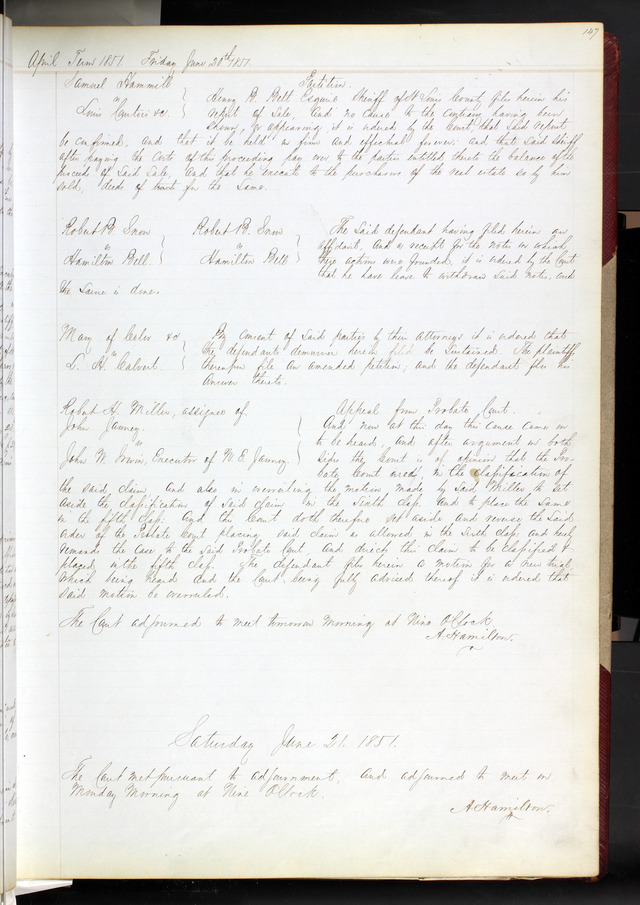 147
April Term 1851. Friday June 20th 1851
Samuel Hammill
Petition.
Louis &c.
Henry B. Belt Esquire Sheriff of St Louis County files herein his
report of Sale, And no cause to the contrary having been
shown, or appearing, it is ordered by the Court, that said report
be confirmed, and that it be held in firm and effectual forever: and that said Sheriff
after paying the costs of this proceeding pay over to the parties entitled thereto the balance of the
proceeds of Said Sale, And that he execute to the purchasers of the real estate so by him
sold, deeds of for the Same.
Robert B. Snow
"
Hamilton Bell
Robert B. Snow
"
Hamilton Bell
The Said defendant having filed herein an
affidavit, And a receipt for the notes on which
these actions were founded, it is ordered by the Court
that he have leave to withdraw said notes, and
the Same is done.
Mary of Color &c
"
L. H. Calvert
By consent of said parties by their attorneys it is ordered that
the defendants demurrer herein filed be Sustained. The plaintiff
therefore file an amended petition, and the defendant files his
Answer thereto.
Robert H. Miller, assignee of
John Janney.
"
John W. Irwin, Executor of N. E. Janney
Appeal from Probate Court.
And now at this day this cause came on
to be heard, and after argument on both
sides the Court is of opinion that the Pro-
bate Court erred, in the classification of
the said claim and also in overruling the motion made by Said Miller to set
aside the classification of Said claim in the Sixth class and to place the same
in the fifth class. And this Court doth therefore set aside and reverse the said
order of the Probate Court placing said claim as allowed in the Sixth class and
remands the case to the Said Probate Court and directs this claim to be classified &
placed in the fifth class. The defendant files herein a motion for a new trial,
Which being heard and the Court being fully advised thereof it is ordered that
said motion be overruled.
The Court adjourned to meet tomorrow morning at Nine OClock
A. Hamilton.
Saturday June 21. 1851.
The Court met pursuant to adjournment, And adjourned to meet on
Monday Morning at Nine OClock.
A. Hamilton.